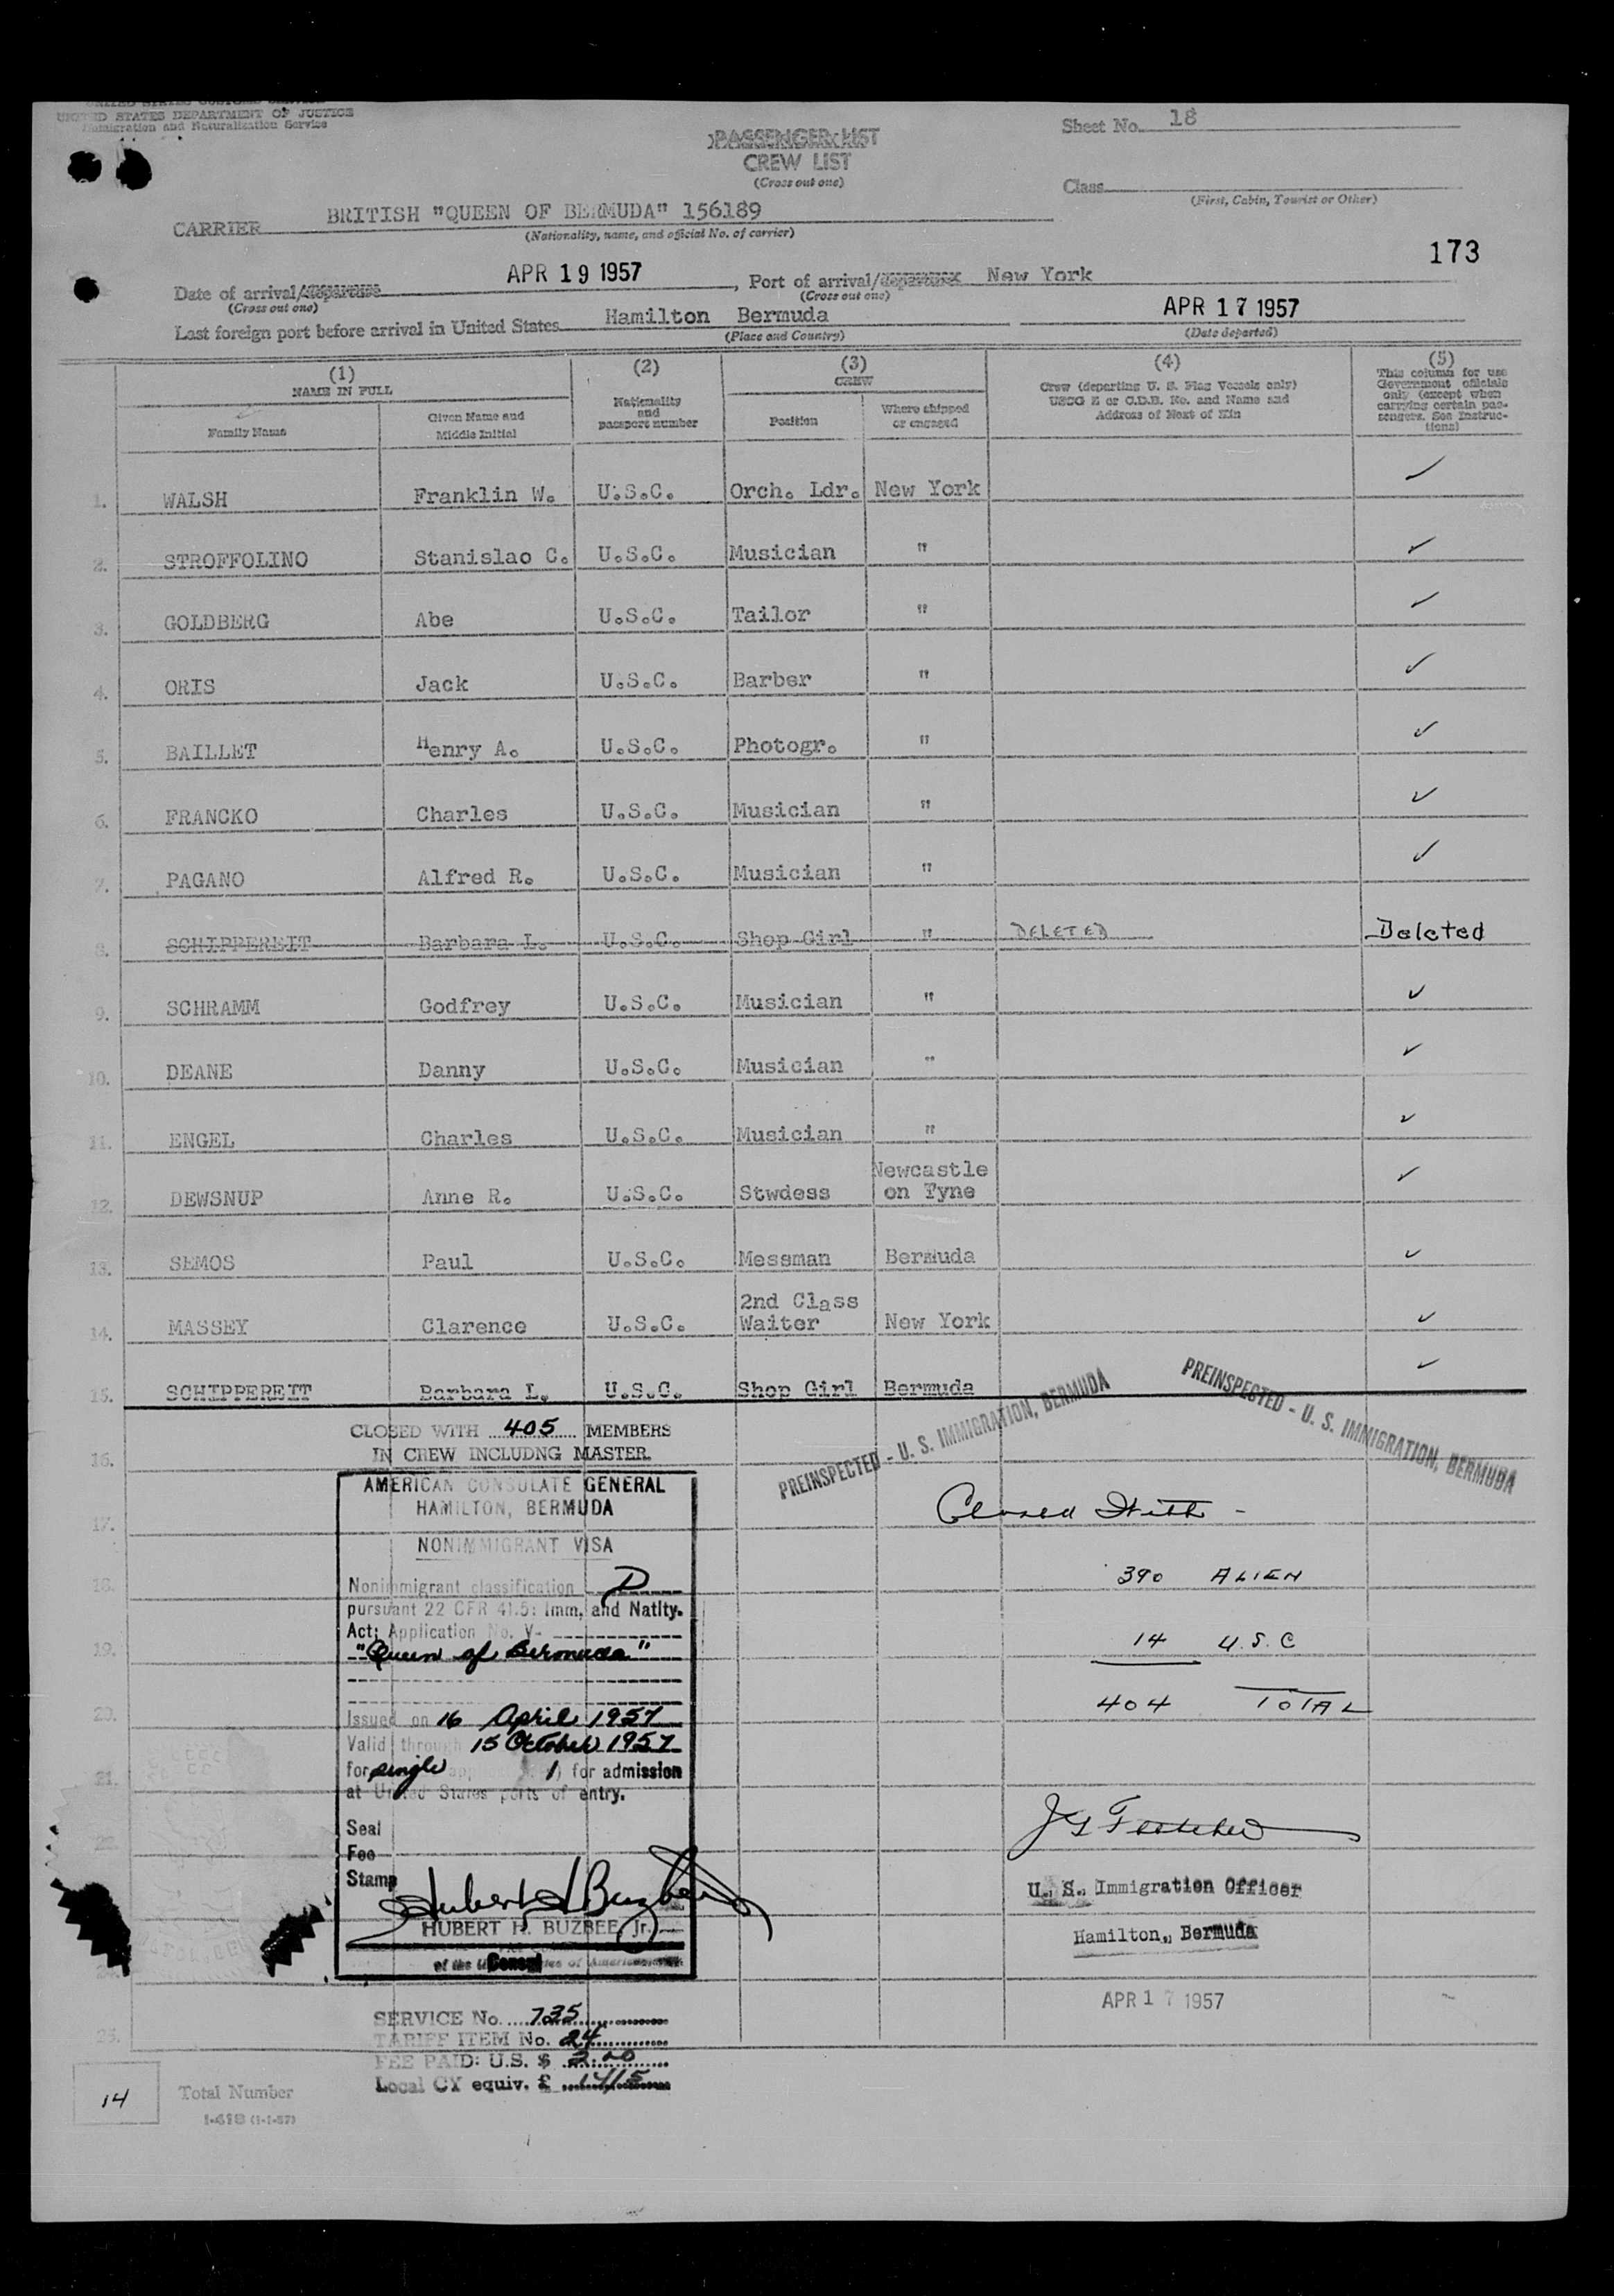 UNITED STATES CUSTOMS SERVICE
UNITED STATES DEPARTMENT OF JUSTICE
Immigration and Naturalization Service
Sheet No. 18
PASSENGER LIST
CREW LIST
(Cross out one)
Class
(First, Cabin, Tourist or Other)
CARRIER BRITISH "QUEEN OF BERMUDA" 156189
(Nationality, name, and official No. of carrier)
173
Date of arrival/departure APR 19 1957, Port of arrival/departure New York
(Cross out one) (Cross out one)
Last foreign port before arrival in United States Hamilton Bermuda APR 17 1957
(Place and Country) (Date departed)
(1) (2) (3) (4) (5)
NAME IN FULL Nationality and passport number CREW Crew (departing U. S. Flag Vessels only) USCG Z or C.D.B. No. and Name and Address of Next of Kin This column for use Government officials only (except when carrying certain passengers. See Instructions)
Family Name Given Name and Middle Initial Position Where shipped or engaged
1. WALSH Franklin W. U.S.C. Orch. Ldr. New York ✓
2. STROFFOLINO Stanislao C. U.S.C. Musician " ✓
3. GOLDBERG Abe U.S.C. Tailor " ✓
4. ORIS Jack U.S.C. Barber " ✓
5. BAILLET Henry A. U.S.C. Photogr. " ✓
6. FRANCKO Charles U.S.C. Musician " ✓
7. PAGANO Alfred R. U.S.C. Musician " ✓
8. SCHIPPEREIT Barbara L. U.S.C. Shop Girl " DELETED Deleted
9. SCHRAMM Godfrey U.S.C. Musician " ✓
10. DEANE Danny U.S.C. Musician " ✓
11. ENGEL Charles U.S.C. Musician " ✓
12. DEWSNUP Anne R. U.S.C. Stwdess Newcastle on Tyne ✓
13. SEMOS Paul U.S.C. Messman Bermuda ✓
14. MASSEY Clarence U.S.C. 2nd Class Waiter New York ✓
15. SCHIPPEREIT Barbara L. U.S.C. Shop Girl Bermuda ✓
PREINSPECTED - U. S. IMMIGRATION, BERMUDA
PREINSPECTED - U. S. IMMIGRATION, BERMUDA
CLOSED WITH 405 MEMBERS
16. IN CREW INCLUDNG MASTER.
AMERICAN CONSULATE GENERAL
HAMILTON, BERMUDA
17. Closed With -
NONIMMIGRANT VISA
18. Nonimmigrant classification D 390 ALIEN
pursuant 22 CFR 41.5: Imm. and Natlty.
Act; Application No. V-
19. "Queen of Bermuda" 14 U.S.C
20. 404 TOTAL
Issued on 16 April 1957
Valid through 15 October 1957
21. for single 1) for admission
at United States ports of entry.
Seal
22. Fee
Stamp
U. S. Immigration Officer
HUBERT H. BUZBEE, Jr.
Hamilton, Bermuda
Consul
of the United States of America
APR 17 1957
SERVICE No. 735
25. TARIFF ITEM No. 24
FEE PAID: U.S. $ 2.00
Local CY equiv. £ 14/5
14 Total Number
I-418 (1-1-57)